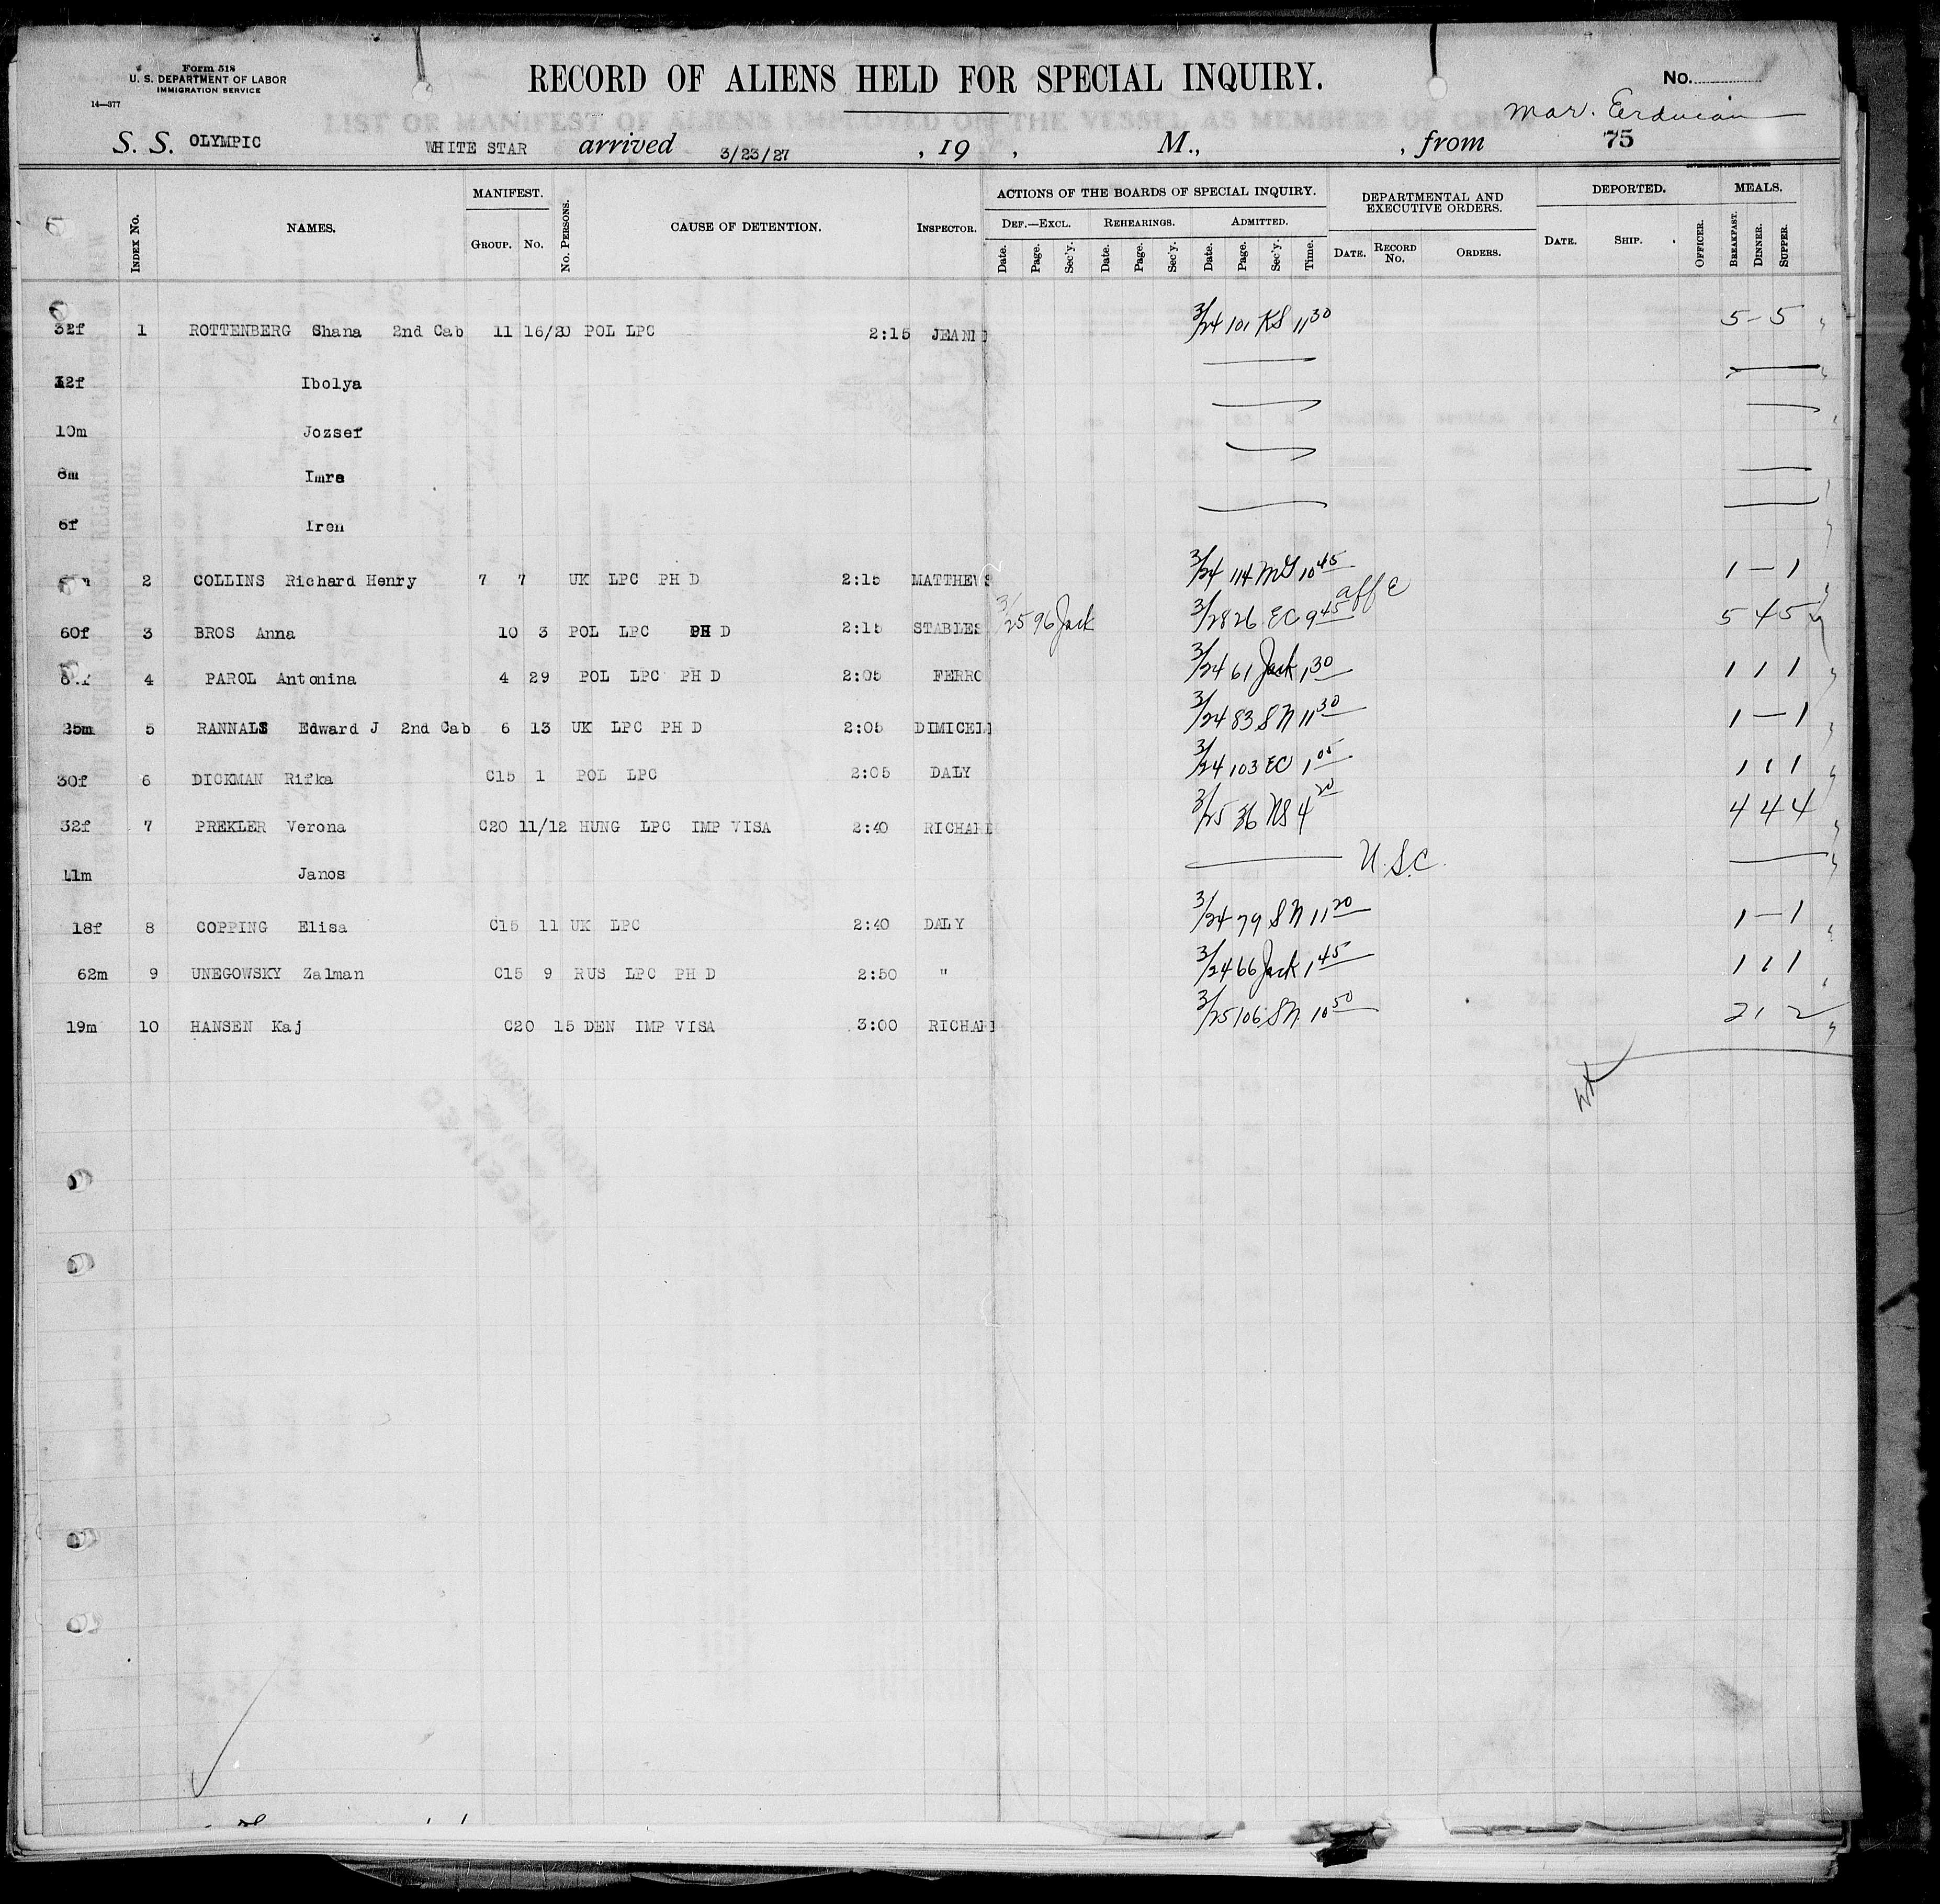 Form 518
U. S. DEPARTMENT OF LABOR
IMMIGRATION SERVICE
14—377
RECORD OF ALIENS HELD FOR SPECIAL INQUIRY.
No.
LIST OR MANIFEST OF ALIENS EMPLOYED ON THE VESSEL AS MEMBERS OF CREW
S. S. OLYMPIC WHITE STAR arrived 3/23/27 , 19 , M., , from 75
INDEX No. NAMES. MANIFEST. GROUP. No. No. PERSONS. CAUSE OF DETENTION. INSPECTOR. ACTIONS OF THE BOARDS OF SPECIAL INQUIRY. DEF.—EXCL. Date. Page. Sec'y. REHEARINGS. Date. Page. Sec'y. ADMITTED. Date. Page. Sec'y. Time. DEPARTMENTAL AND EXECUTIVE ORDERS. DATE. RECORD No. ORDERS. DEPORTED. DATE. SHIP. OFFICER. MEALS. BREAKFAST. DINNER. SUPPER.
32f 1 ROTTENBERG Shana 2nd Cab 11 16/20 POL LPC 2:15 3/24 101 KS 11 30 5 – 5
Ibolya
10m Jozsef
8m Imre
6f Iren
2 COLLINS Richard Henry 7 7 UK LPC PH D 2:15 MATTHEWS 3/24 114 10 45 1 – 1
60f 3 BROS Anna 10 3 POL LPC PH D 2:15 STABLES 3/25 96 Jack 3/28 26 EC 9 45 5 4 5
4 PAROL Antonina 4 29 POL LPC PH D 2:05 FERRO 3/24 61 Jack 1 30 1 1 1
25m 5 RANNALS Edward J 2nd Cab 6 13 UK LPC PH D 2:05 DIMICELI 3/24 83 SN 11 30 1 – 1
30f 6 DICKMAN Rifka C15 1 POL LPC 2:05 DALY 3/24 103 EC 1 05 1 1 1
32f 7 PREKLER Verona C20 11/12 HUNG LPC IMP VISA 2:40 RICHARD 3/25 36 4 20 4 4 4
11m Janos U.S.C.
18f 8 COPPING Elisa C15 11 UK LPC 2:40 DALY 3/24 79 SN 11 20 1 – 1
62m 9 UNEGOWSKY Zalman C15 9 RUS LPC PH D 2:50 " 3/24 66 Jack 1 45 1 1 1
19m 10 HANSEN Kaj C20 15 DEN IMP VISA 3:00 RICHAR 3/25 106 SN 10 50 2 1 2